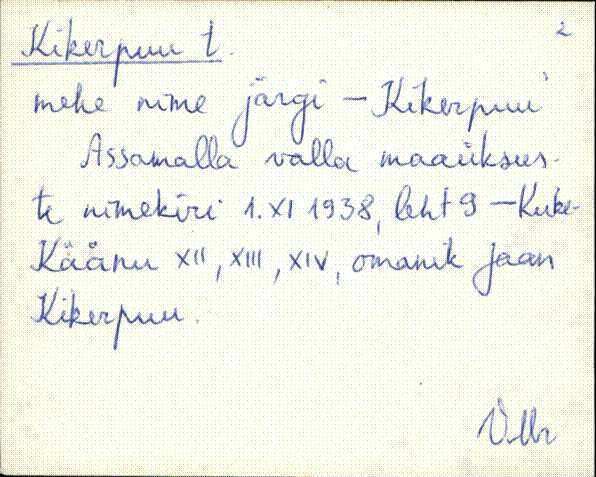 Kikerpuu t. 2
mehe nime järgi – Kikerpuu'
Assamalla valla maaüksus-
te nimekiri 1.XI 1938, leht 9 – Kuke-
Käänu XII, XIII, XIV, omanik Jaan
Kikerpuu.